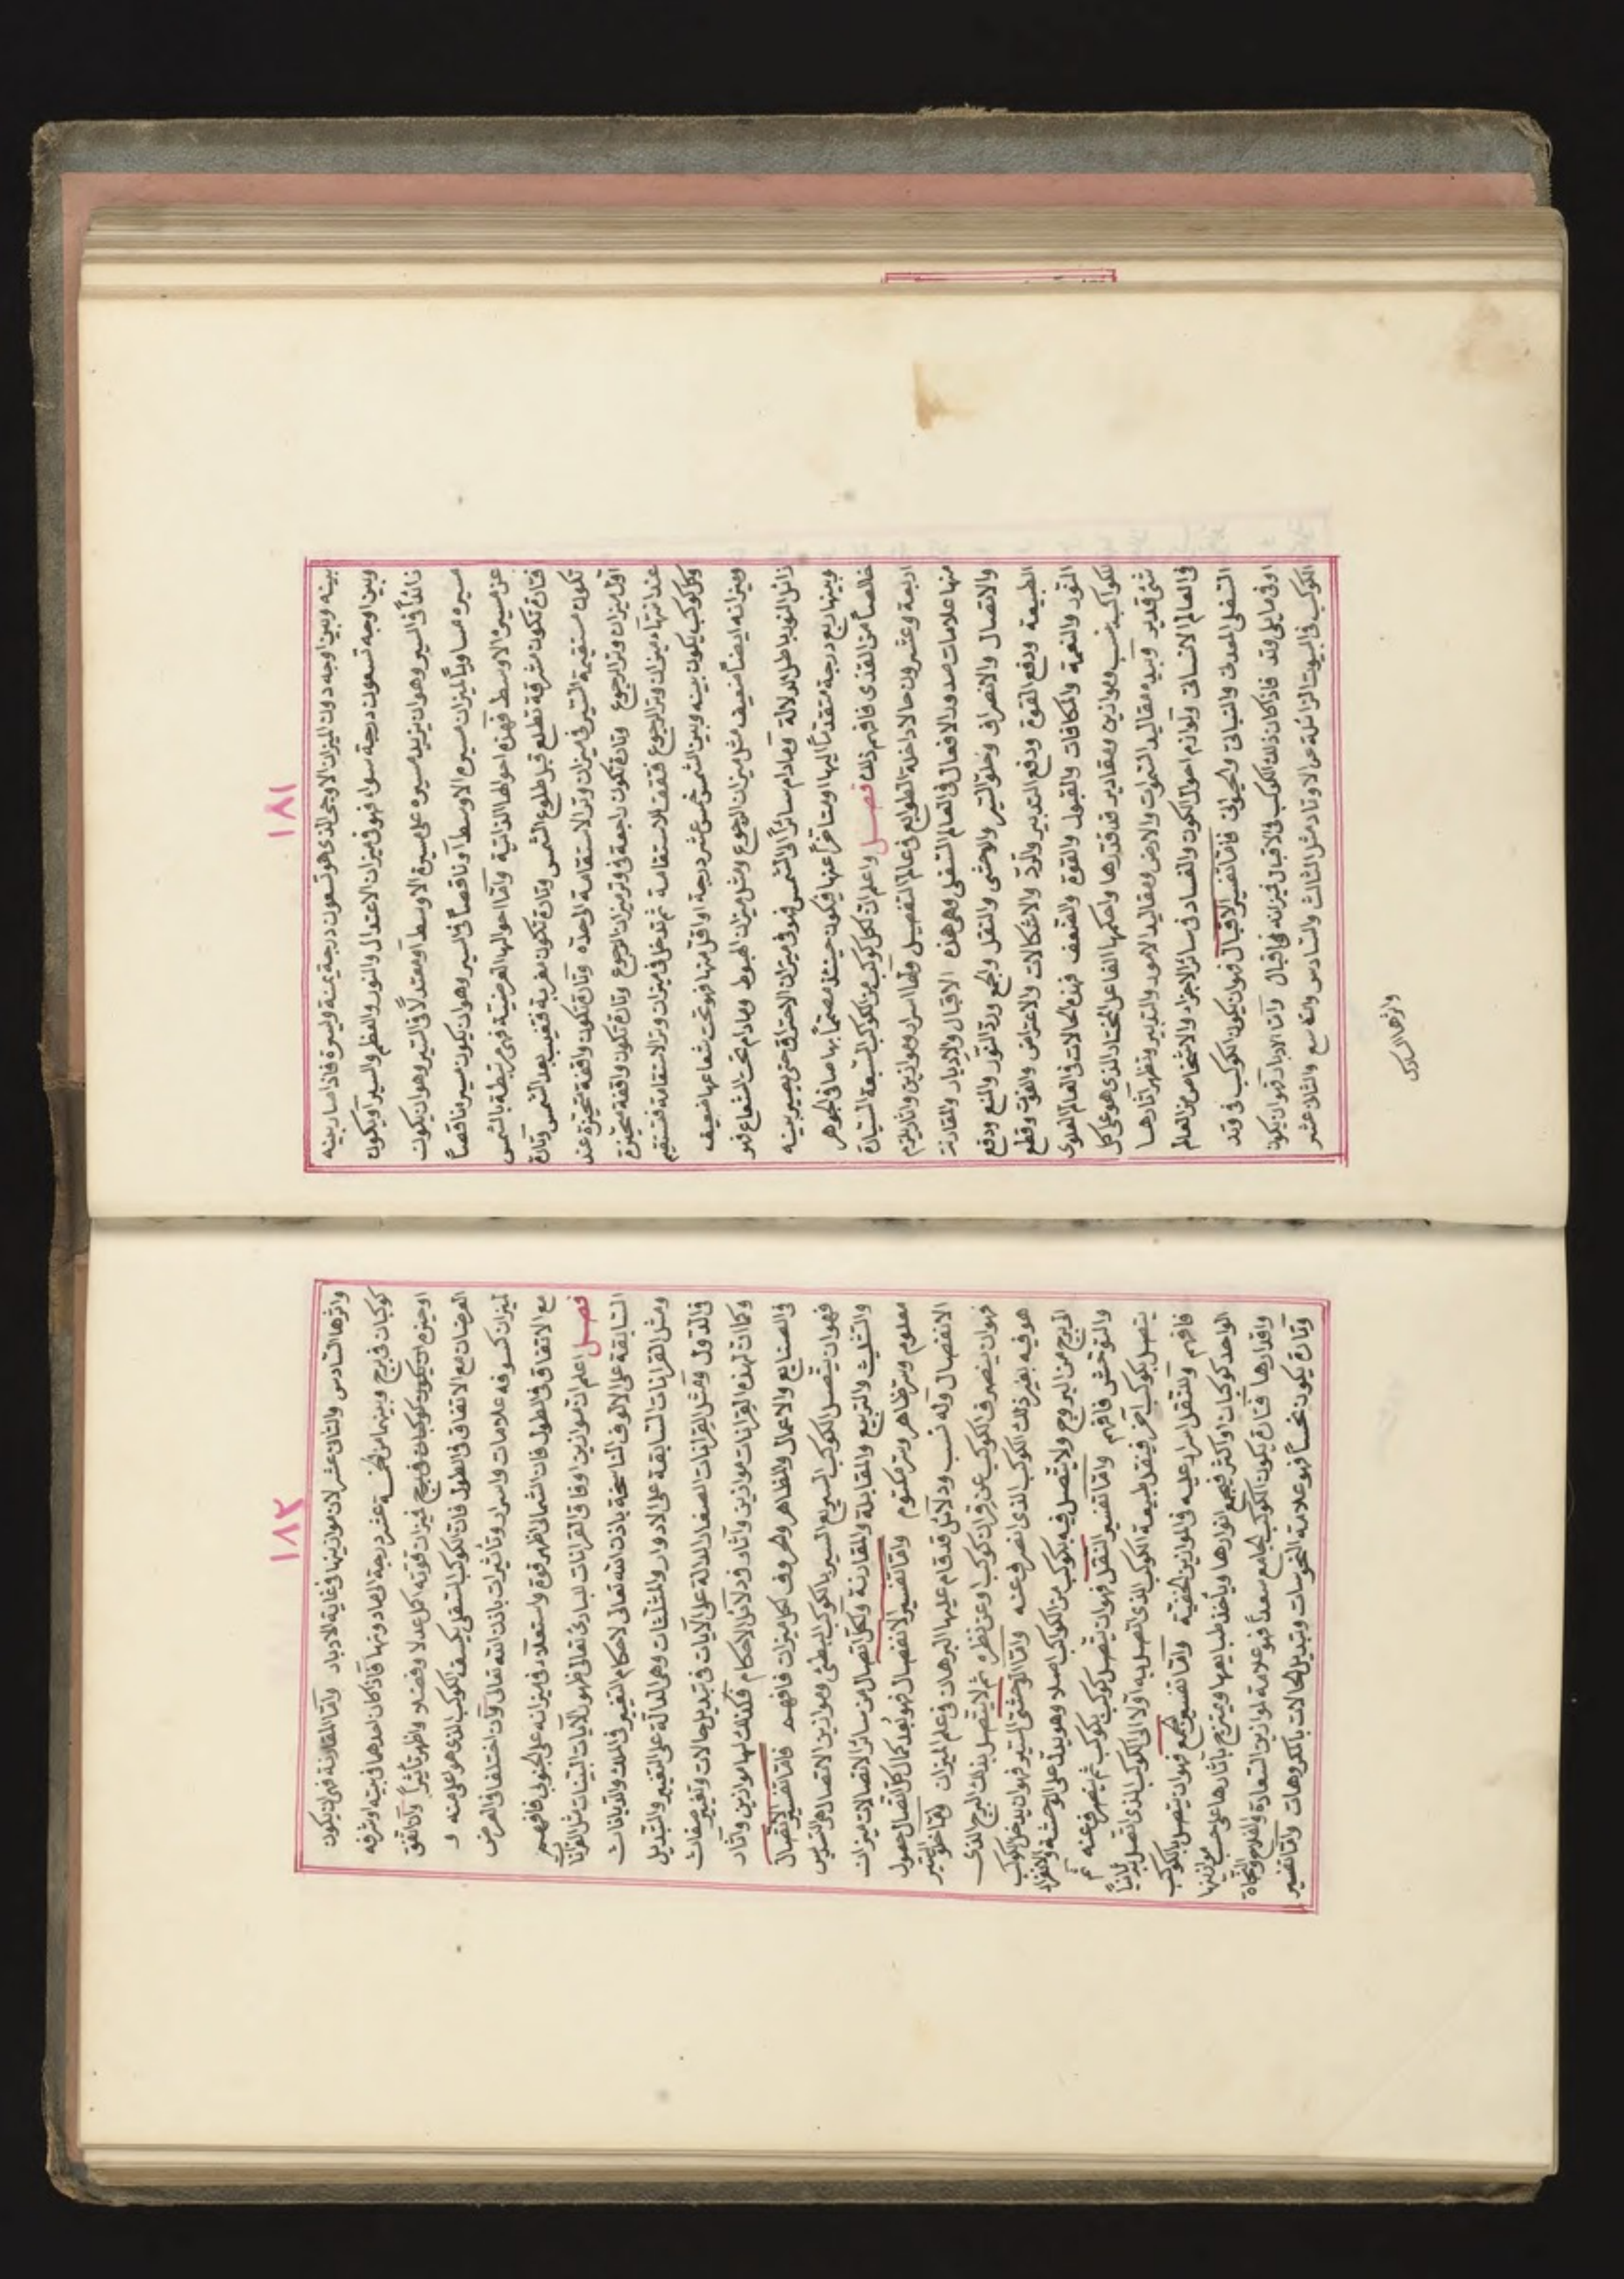 ١٨١
بينه وبين اوجه دون الميزان الاوجى الذى هو تسعون درجة يمنة ويسرة فاذا صار بينه
وبين اوجه تسعون درجة سواء فهو فى ميزان الاعتدال والنور والعظم والسير او يكون
زائداً فى السير وهو ان يزيد مسيره على مسيرة الاوسط او معتدلاً فى السير وهو ان يكون
مسيره مساوياً لميزان مسيره الاوسط او ناقصاً فى السير وهو ان يكون مسيره ناقصاً
عن مسيرة الاوسط فهذه احوالها الذاتية واما احوالها العرضية فهى مرتبطة بالشمس
فتارة تكون مشرقية تطلع قبل طلوع الشمس وتارة تكون مغربية فتغيب بعد الشمس وتارة
تكون مستقيمة السير فى ميزان وتر الاستقامة المحدّه وتارة تكون واقفة متحيّرة عند
اول ميزان وتر الرجوع وتارة تكون راجعة فى وتر ميزان الرجوع وتارة تكون واقفة متحيّرة
عند انتهاء ميزان وتر الرجوع فتقف للاستقامة ثم تدخل فى ميزان وتر الاستقامة فتستقيم
وكل كوكب يكون بينه وبين الشمس خمس عشر درجة او اقل منها فهو تحت شعاعها ضعيف
وميزانه ايضاً ضعيف مثل ميزان الرجوع ومثل ميزان الهبوط ومادام تحت الشعاع فهو
زائل النور باطل الدلالة ومادام سائراً الى الشمس فهو فى ميزان الاحتراق حتى يصير بينه
وبينها ربع درجة متقدماً اليها او متأخراً عنها فيكون حينئذ مصتماً بها صافى الجوهر
خالصاً من القذى فافهم ذلك فصــل واعلم ان لكل كوكب من الكواكب السبعة السيارة
اربعة وعشرون حالا داخلة الطوابع فى عالم التفصيل ولها اسرار وموازين واثار يلزم
منها علامات صدور الافعال فى العالم السفلى وهى هذه الاقبال والادبار والمقارنة
والاتصال والانصراف وخلو السير والوحشى والنقل والجمع وردّ النور والمنع ودفع
الطبيعة ودفع القوة ودفع التدبير والردّ والاشكالات والاعتراض والفوت وقطع
النور والنعمة والمكافات والقبول والقوة والضعف فهذه الحالات فى العالم العلوى
للكواكب بنسب وموازين ومقادير قد قدرها واحكمها الفاعل المختار الذى هو على كل
شئ قدير وبيده مقاليد السموات والارض ومقاليد الامور والتدبير وتظهر آثارها
فى العالم الانسانى ولوازم احوال الكون والفساد فى سائر الاجزاء والاشخاص من العالم
السفلى المعدنى والنباتى والحيوانى فاما تفسير الاقبال فهو ان يكون الكوكب فى وتد
او فى مايلى وتد فاذا كان ذلك الكوكب فى الاقبال فميزانه فى اقبال واما الادبار فهو ان يكون
الكوكب فى البيوت الزائلة عن الاوتاد مثل الثالث والسادس والتاسع والثانى عشر
واثرها السادس
١٨٢
واثرها السادس والثانى عشر لان موازينها فى غاية الادبار واما المقارنة فهى ان يكون
كوكبان فى برج وبينهما من خمسة عشر درجة الى ما دونها فاذا كان احدهما فى بيته او شرفه
او حيزه ان يكون كوكبان فى برج فميزان قوته كل عدلا وفضلا واظهر تأثيراً وان اتفق
العرضان مع الاتفاق فى الطول فان الكوكب السفلى يكسف الكوكب الذى هو اعلى منه و
لميزان كسوفه علامات واسرار وتأثيرات باذن الله تعالى وان اختلفا فى العرض
مع الاتفاق فى الطول فان الشمالى اظهر قوة واستعلاء فى ميزانه على الجنوبى فافهم
فصــل اعلم ان موازين اوفاق القرانات للبارئ تعالى ظهور الآيات البينات مثل القرانات
السابقة على الالوف الناسخة باذن الله تعالى لاحكام التغيير فى الملل والديانات
ومثل القرانات السابقة على الادوار والمثلثات وهى الدالة على التغيير والتبديل
فى الدول ومثل القرانات الصغار الدالة على الآيات فى تبديل حالات وتغيير صفات
وكما ان لهذه القرانات موازين وآثار ودلائل الاحكام فكذلك لها موازين وآثار
فى الصنايع والاعمال والمظاهر والحروف لكل ميزان فافهم فاما تفسير الاتصال
فهو ان يتصل الكوكب السريع السير بالكوكب البطئ وموازين الاتصال هى التسديس
والتثليث والتربيع والمقابلة والمقارنة ولكل اتصال من سائر الاتصالات ميزان
معلوم وسر ظاهر وسر مكتوم واما تفسير الانفصال فهو بُعد كمال كل اتصال حصول
الانفصال وله نسب ودلائل قد قام عليها البرهان فى علم الميزان واما خلو السير
فهو ان ينصرف الكوكب عن قران كوكب او عن نظره ثم لا يتصل بذلك البرج الذى
هو فيه بغير ذلك الكوكب الذى انصرف عنه واما الوحشى السير فهو ان يدخل الكوكب
البرج من البروج ولا يتصل فيه بكوكب من الكواكب اصلا وهو يدل على الوحشة والانفراد
والتوحش فافهم واما تفسير النقل فهو ان يتصل كوكب بكوكب ثم ينصرف عنه ثم
يتصل بكوكب آخر فينقل طبيعة الكوكب الذى اتصل به اولا الى الكوكب الذى اتصل به ثانياً
فافهم وللنقل اسرار عليه فى الموازين الخفية واما تفسير الجمع فهو ان يتصل بالكوكب
الواحد كوكبان او اكثر فيجمع انوارها ويأخذ طبايعها ويمتزج بآثارها على حسب موازينها
واقدارها فتارة يكون الكوكب الجامع سعداً فهو علامة لموازين السعادة والفلاح والنجاة
وتارة يكون نحساً فهو علامة النحوسات وتبديل الحالات بالمكروهات واما تفسير